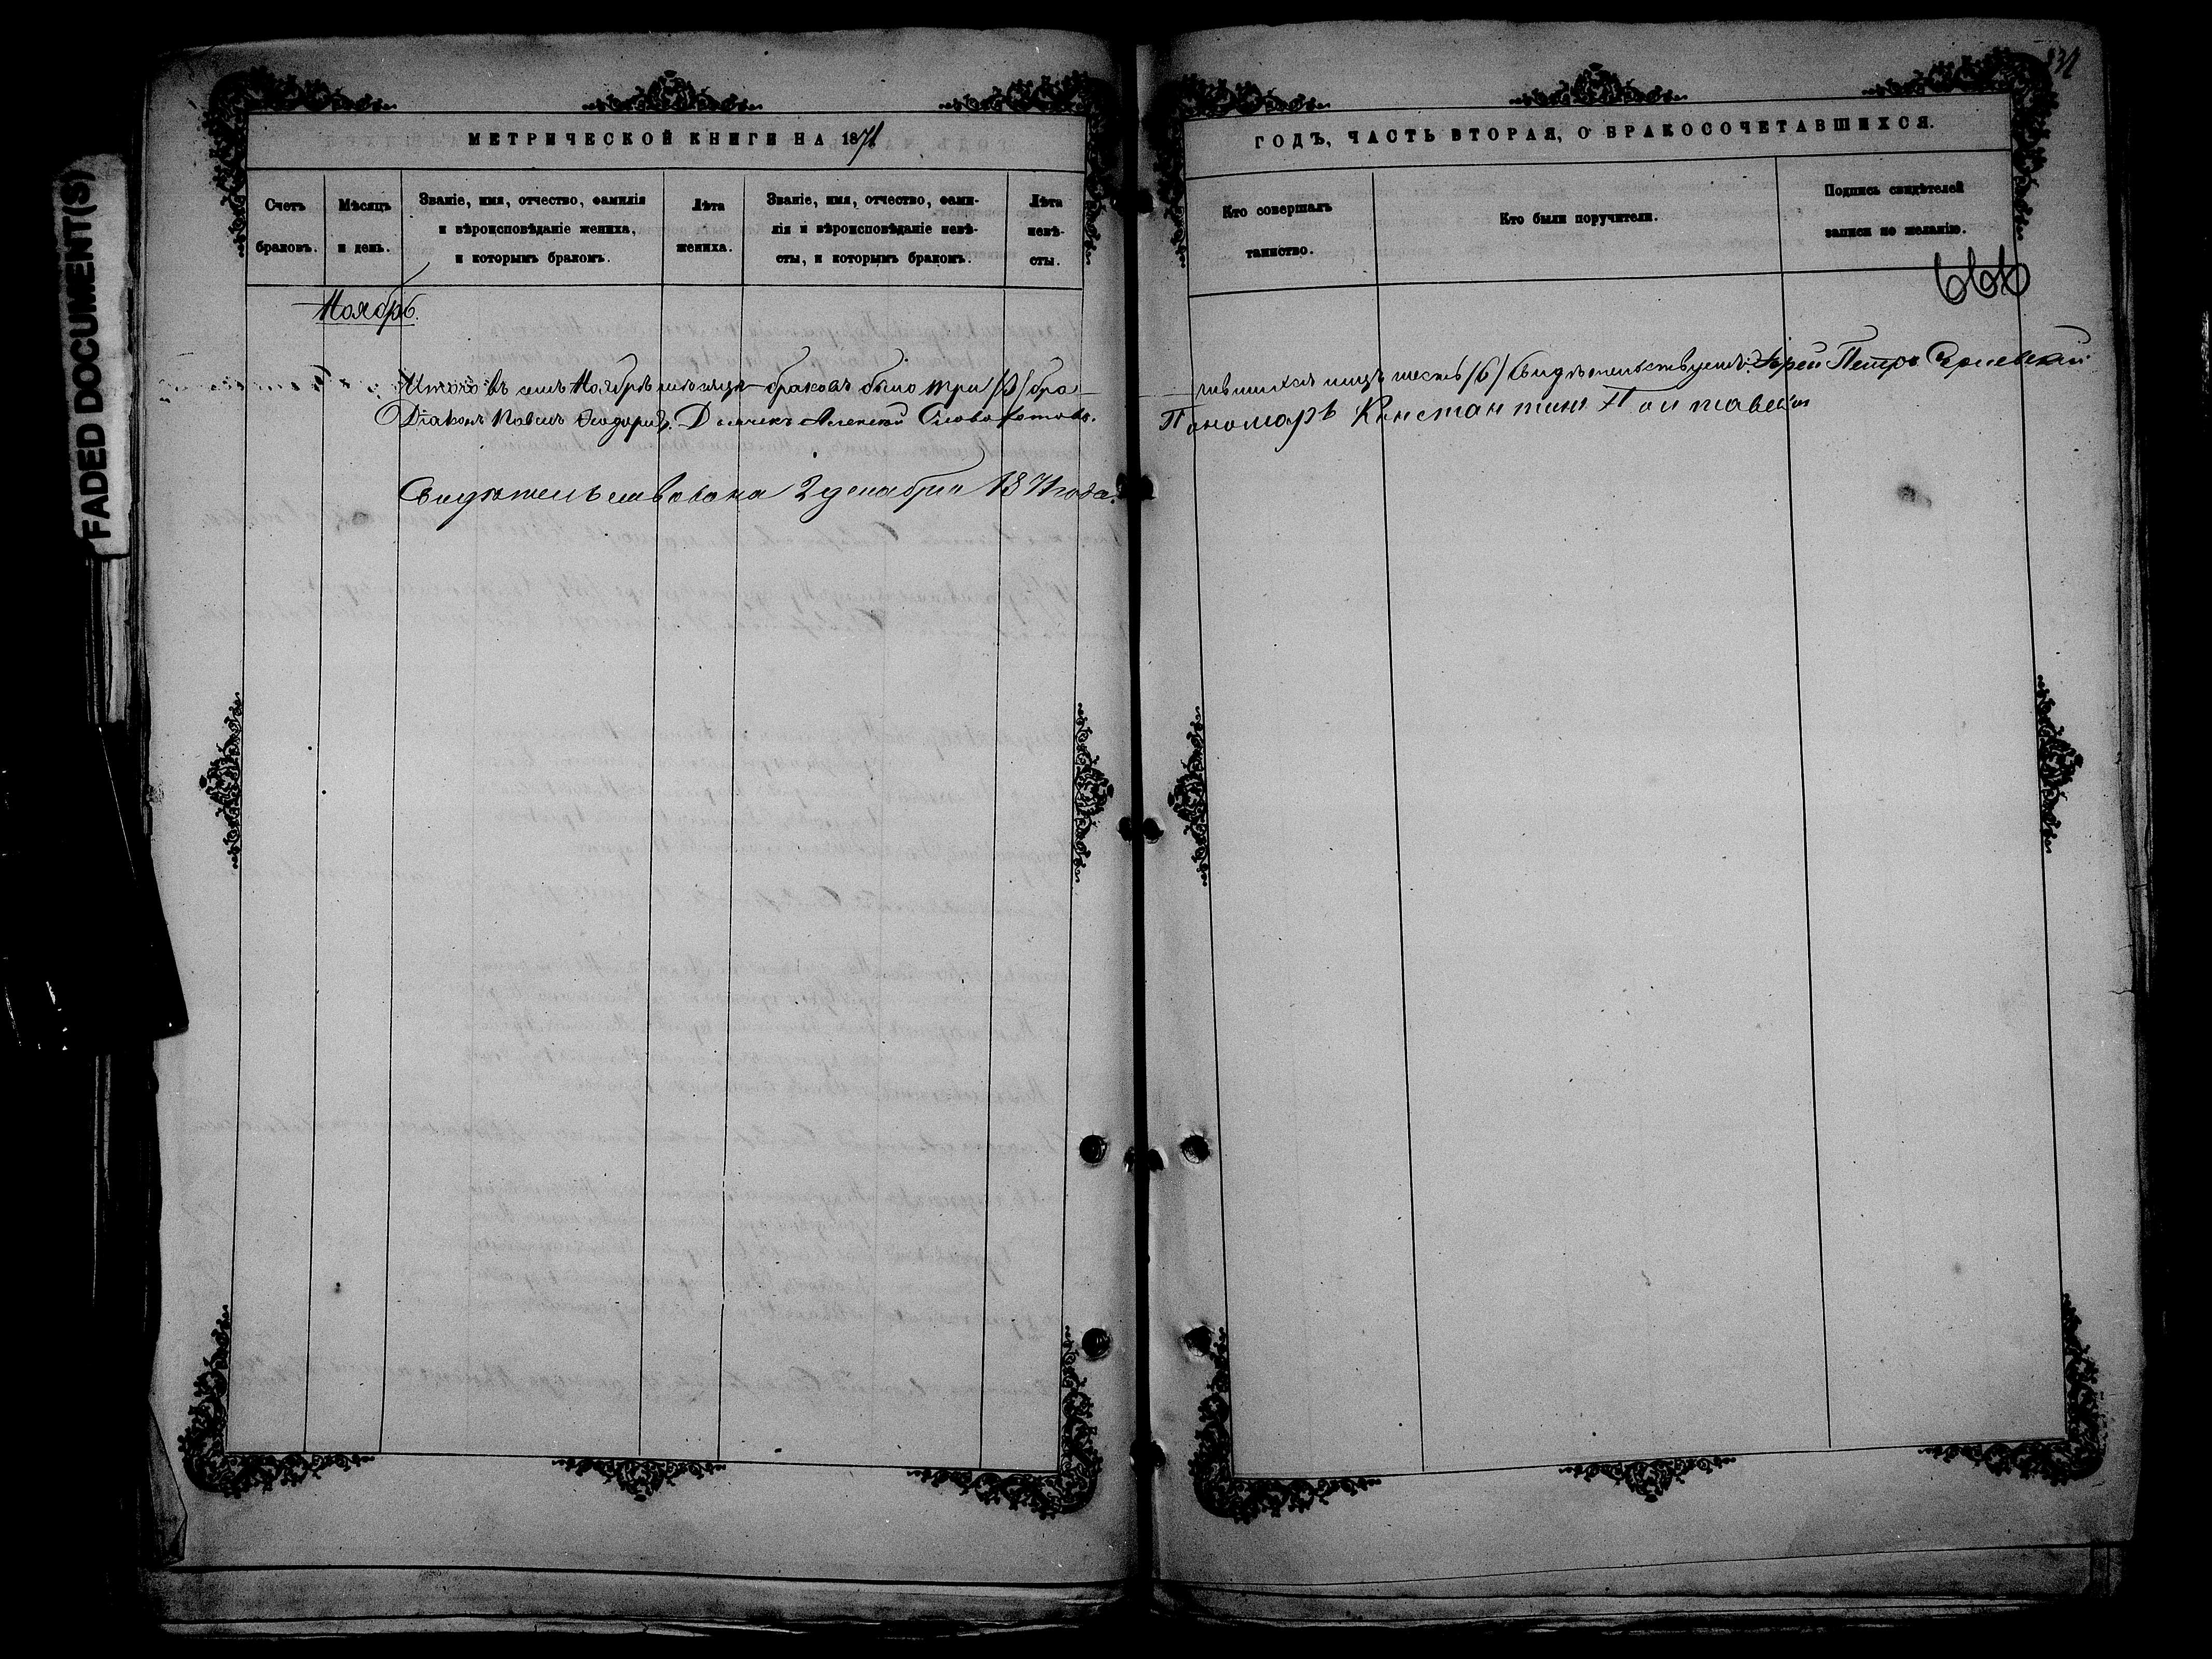 FADED DOCUMENT(S)
МЕТРИЧЕСКОЙ КНИГИ НА 1871
Счетъ браковъ.
Мѣсяцъ и день.
Званіе, имя, отчество, фамилія
и вѣроисповѣданіе жениха,
и которымъ бракомъ.
Лѣта жениха.
Званіе, имя, отчество, фами-
лія и вѣроисповѣданіе невѣ-
сты, и которымъ бракомъ.
Лѣта
невѣ-
сты.
Ноябрь.
Итого въ семъ Ноябрѣ мѣсяцѣ браковъ было три /3/ бра
Діаконъ Павелъ Дьячекъ Алексей
Свидѣтельствована 2 декабря 1871 года.
ГОДЪ, ЧАСТЬ ВТОРАЯ, О БРАКОСОЧЕТАВШИХСЯ.
Кто совершалъ
таинство.
Кто были поручители.
Подпись свидѣтелей
записи по желанію.
666
лицъ шесть /6/ Свидѣтельствуемъ: Іерей Петръ
Пономарь Константинъ Полтавскій